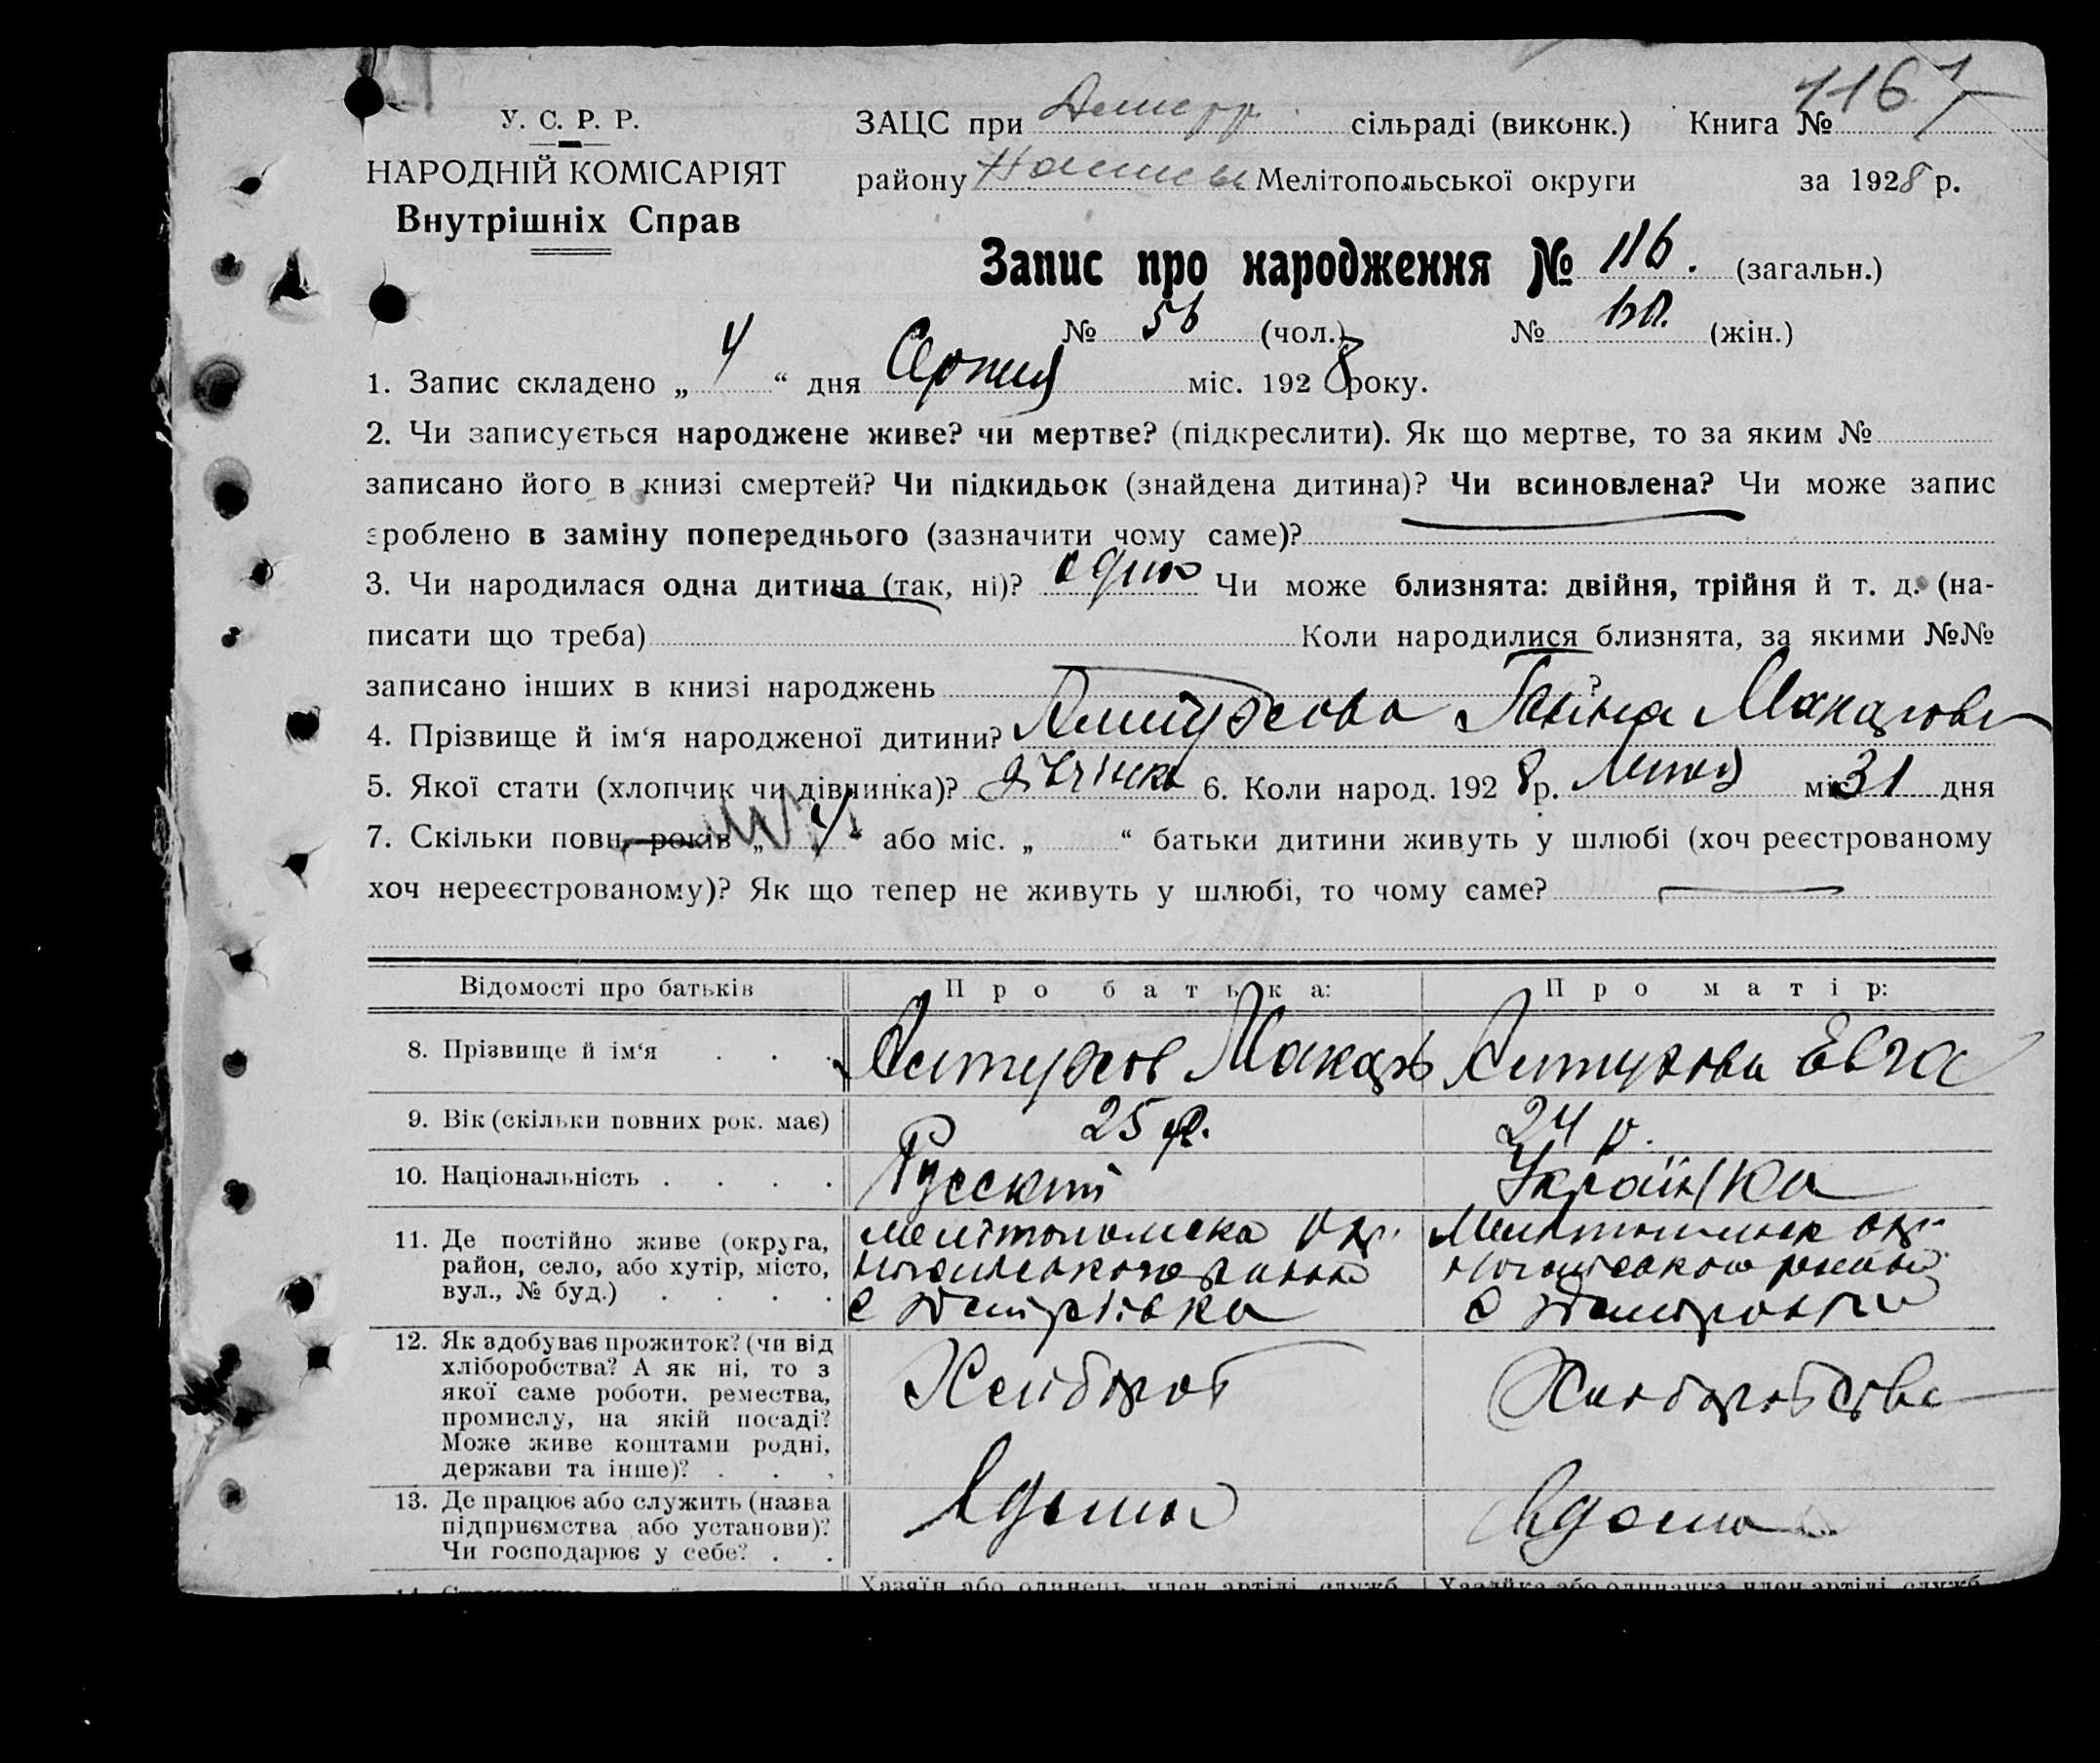 У. С. Р. Р.
НАРОДНІЙ КОМІСАРІЯТ
Внутрішніх Справ
ЗАЦС при сільраді (виконк.) Книга № 116
району Мелітопольської округи за 1928 р.
Запис про народження № 116. (загальн.)
№ 56 (чол.) № 60. (жін.)
1. Запис складено „ 4 “ дня Серпня міс. 1928 року.
2. Чи записується народжене живе? чи мертве? (підкреслити). Як що мертве, то за яким №
записано його в книзі смертей? Чи підкидьок (знайдена дитина)? Чи всиновлена? Чи може запис
зроблено в заміну попереднього (зазначити чому саме)?
3. Чи народилася одна дитина (так, ні)? одно Чи може близнята: двійня, трійня й т. д. (на-
писати що треба) Коли народилися близнята, за якими №№
записано інших в книзі народжень ?
4. Прізвище й ім‘я народженої дитини? Ганна Макарова
5. Якої стати (хлопчик чи дівчинка)? дівчинка 6. Коли народ. 1928 р. Липня міс 31 дня
7. Скільки повн. років „ “ або міс. „ “ батьки дитини живуть у шлюбі (хоч реєстрованому
хоч нереєстрованому)? Як що тепер не живуть у шлюбі, то чому саме?
Відомості про батьків Про батька: Про матір:
8. Прізвище й ім‘я . . . Макарь
9. Вік (скільки повних рок. має) 25 р. 24 р.
10. Національність . . . . Русский Українка
11. Де постійно живе (округа,
район, село, або хутір, місто,
вул., № буд.) . . . .
Мелітопольска окр.
Ногайського району
с Дмитрівка
Мелитопольск окр.
Ногайського району
с
12. Як здобуває прожиток? (чи від
хліборобства? А як ні, то з
якої саме роботи, ремества,
промислу, на якій посаді?
Може живе коштами родні,
держави та інше)? . . .
Хлібороб
Хліборобство
13. Де працює або служить (назва
підприємства або установи)?
Чи господарює у себе? . .
Вдома
Вдома
Хазяїн або одинець, член артілі, служб.
Хазяйка або одиначка, член артілі, служб.